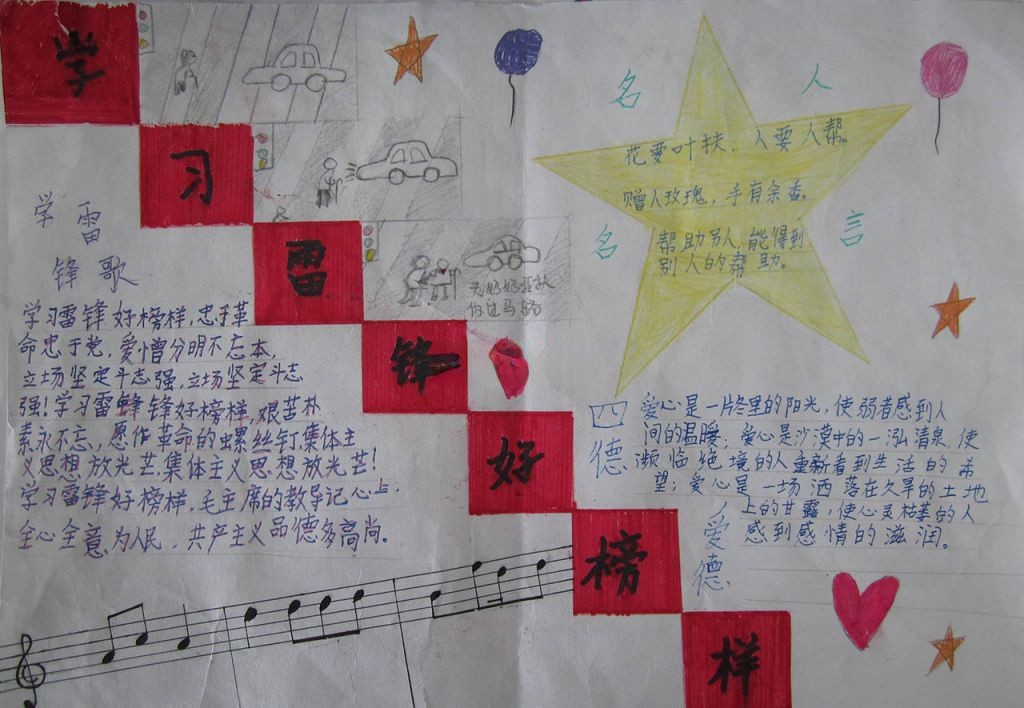 学习雷锋好榜样
学雷
锋歌
学习雷锋好榜样,忠于革
命忠于党,爱憎分明不忘本,
立场坚定斗志强,立场坚定斗志
强!学习雷锋锋好榜样,艰苦朴
素永不忘,愿作革命的螺丝钉,集体主
义思想放光芒,集体主义思想放光芒!
学习雷锋好榜样,毛主席的教导记心上,
全心全意为人民,共产主义品德多高尚。
你过马路
名人
名言
花要叶扶,人要人帮。
赠人玫瑰,手有余香。
帮助别人,能得到
别人的帮助。
四德
爱德
爱心是一片冬里的阳光,使弱者感到人
间的温暖;爱心是沙漠中的一泓清泉,使
濒临绝境的人重新看到生活的希
望;爱心是一场洒落在久旱的土地
上的甘露,使心灵枯萎的人
感到感情的滋润。